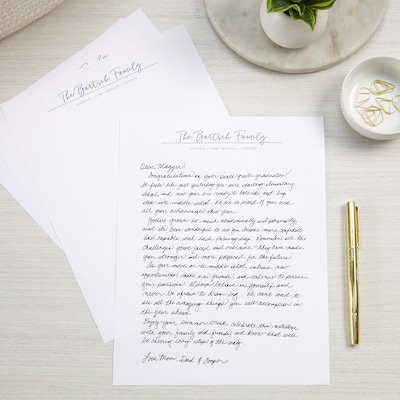 The Bartsch Family
The Bartsch Family
Dear Maggie,
Congratulations on your sixth grade graduation!
It feels like just yesterday you were starting elementary
school and now you are ready to take the next big
step into middle school. We are so proud of you and
all your achievements this year.
You've grown so much academically and personally,
and it's been wonderful to see you become more confident
and capable with each passing day. Remember all the
challenges you've faced and overcome. They have made
you stronger and more prepared for the future.
As you move on to middle school, embrace new
opportunities, make new friends, and continue to pursue
your passions. Always believe in yourself and
never be afraid to dream big. We can't wait to
see all the amazing things you will accomplish in
the year ahead.
Enjoy your summer break, celebrate this milestone
with your family and friends and know that we'll
be cheering every step of the way.
Love Mom, Dad & Cooper